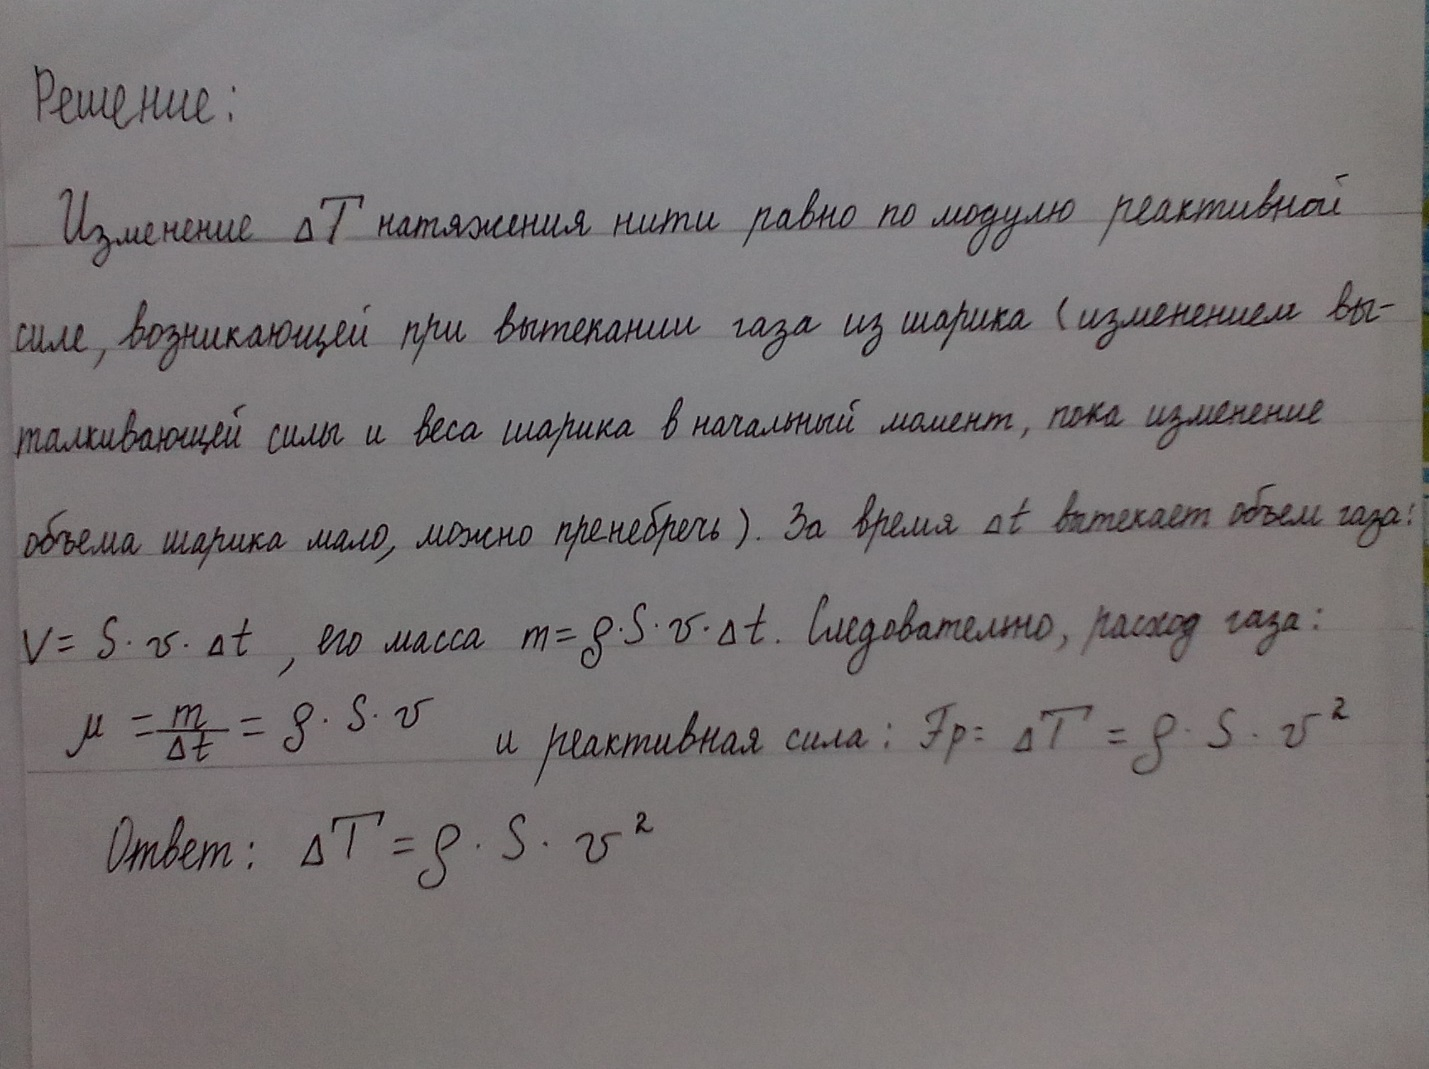 Решение:
Изменение ΔT натяжения нити равно по модулю реактивной
силе, возникающей при вытекании газа из шарика (изменением вы-
талкивающей силы и веса шарика в начальный момент, пока изменение
объема шарика мало, можно пренебречь). За время Δt вытекает объем газа:
V = S · v · Δt, его масса m = ρ · S · v · Δt. Следовательно, расход газа:
μ = m/Δt = ρ · S · v и реактивная сила: Fp = ΔT = ρ · S · v²
Ответ: ΔT = ρ · S · v²